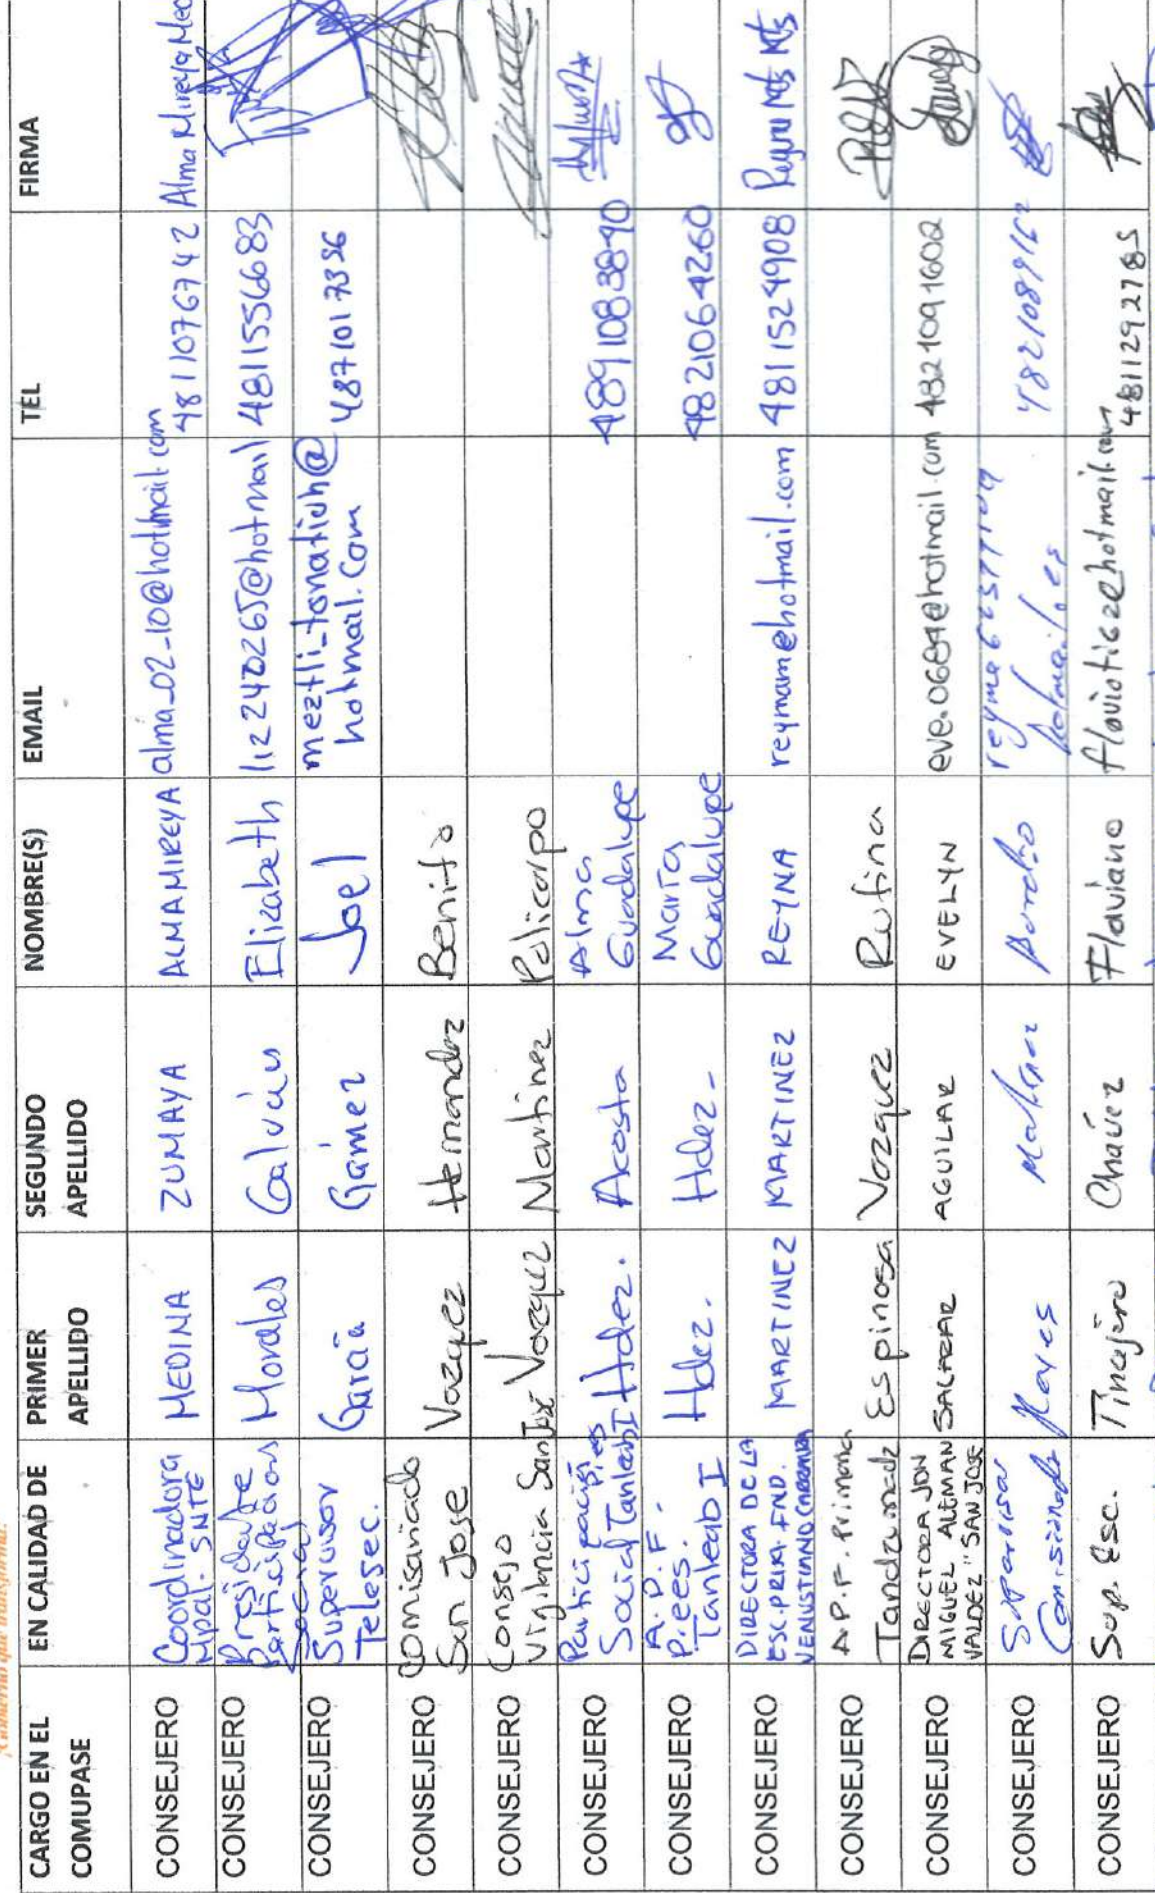 Gobierno que transforma.
CARGO EN EL COMUPASE EN CALIDAD DE PRIMER APELLIDO SEGUNDO APELLIDO NOMBRE(S) EMAIL TEL FIRMA
CONSEJERO Coordinadora Mpal. SNTE MEDINA ZUMAYA ALMA MIREYA alma_02_10@hotmail.com 4811076742 Alma Mireya Med
CONSEJERO Presidente Participacion Social Morales Galván Elizabeth liz240265@hotmail 4811556683
CONSEJERO Supervisor Telesec. García Gámez Joel meztli_tonatiuh@hotmail.com 4871017356
CONSEJERO Comisariado San Jose Vazquez Hernandez Benito
CONSEJERO Consejo Vigilancia San José Vazquez Martinez Policarpo
CONSEJERO Participación Social Tanleab I Hdez. Acosta Alma Guadalupe 4891083890
CONSEJERO A.P.F. Prees. Tanleab I Hdez. Hdez. Marta Guadalupe 4821064260
CONSEJERO DIRECTORA DE LA ESC. PRIM. FND. VENUSTIANO CARRANZA MARTINEZ MARTINEZ REYNA reymam@hotmail.com 4811524908 Reyna Mtz Mtz
CONSEJERO A.P.F. Primaria Tandzumadz Espinosa Vazquez Rufina
CONSEJERO DIRECTORA JDN MIGUEL ALEMAN VALDEZ "SAN JOSE SALAZAR AGUILAR EVELYN eve.0684@hotmail.com 4821091602
CONSEJERO Supervisor Comisionado Reyes Martinez hotmail.es 4821089162
CONSEJERO Sup. Esc. Tincajero Chávez Flaviano 4811292785